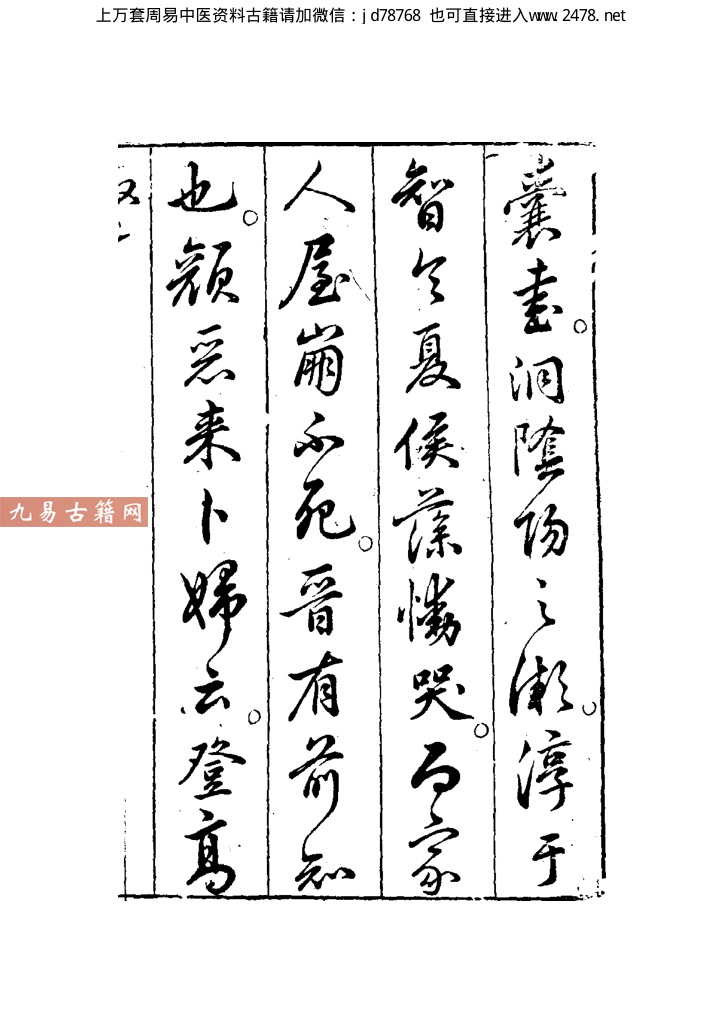 上万套周易中医资料古籍请加微信：jd78768 也可直接进入www.2478.net
囊書。洞陰陽之漸。淳于
智令夏侯藻慟哭。而家
人屋崩不死。晉有前知
也。顏惡来卜婦云。登高
九易古籍网